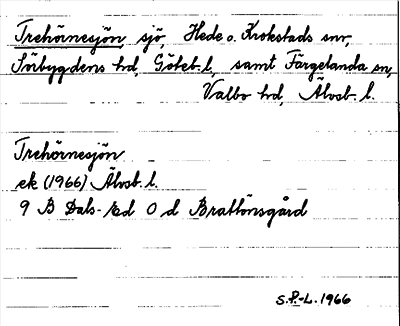 Trehörnesjön, sjö, Hede o. Krokstads snr,
Sörbygdens hd, Göteb. l., samt Färgelanda sn,
Valbo hd, Älvsb. l.
Trehörnesjön
ek (1966) Älvsb. l.
9 B Dals-Ed 0 d Brattönsgård
S.P.-L. 1966